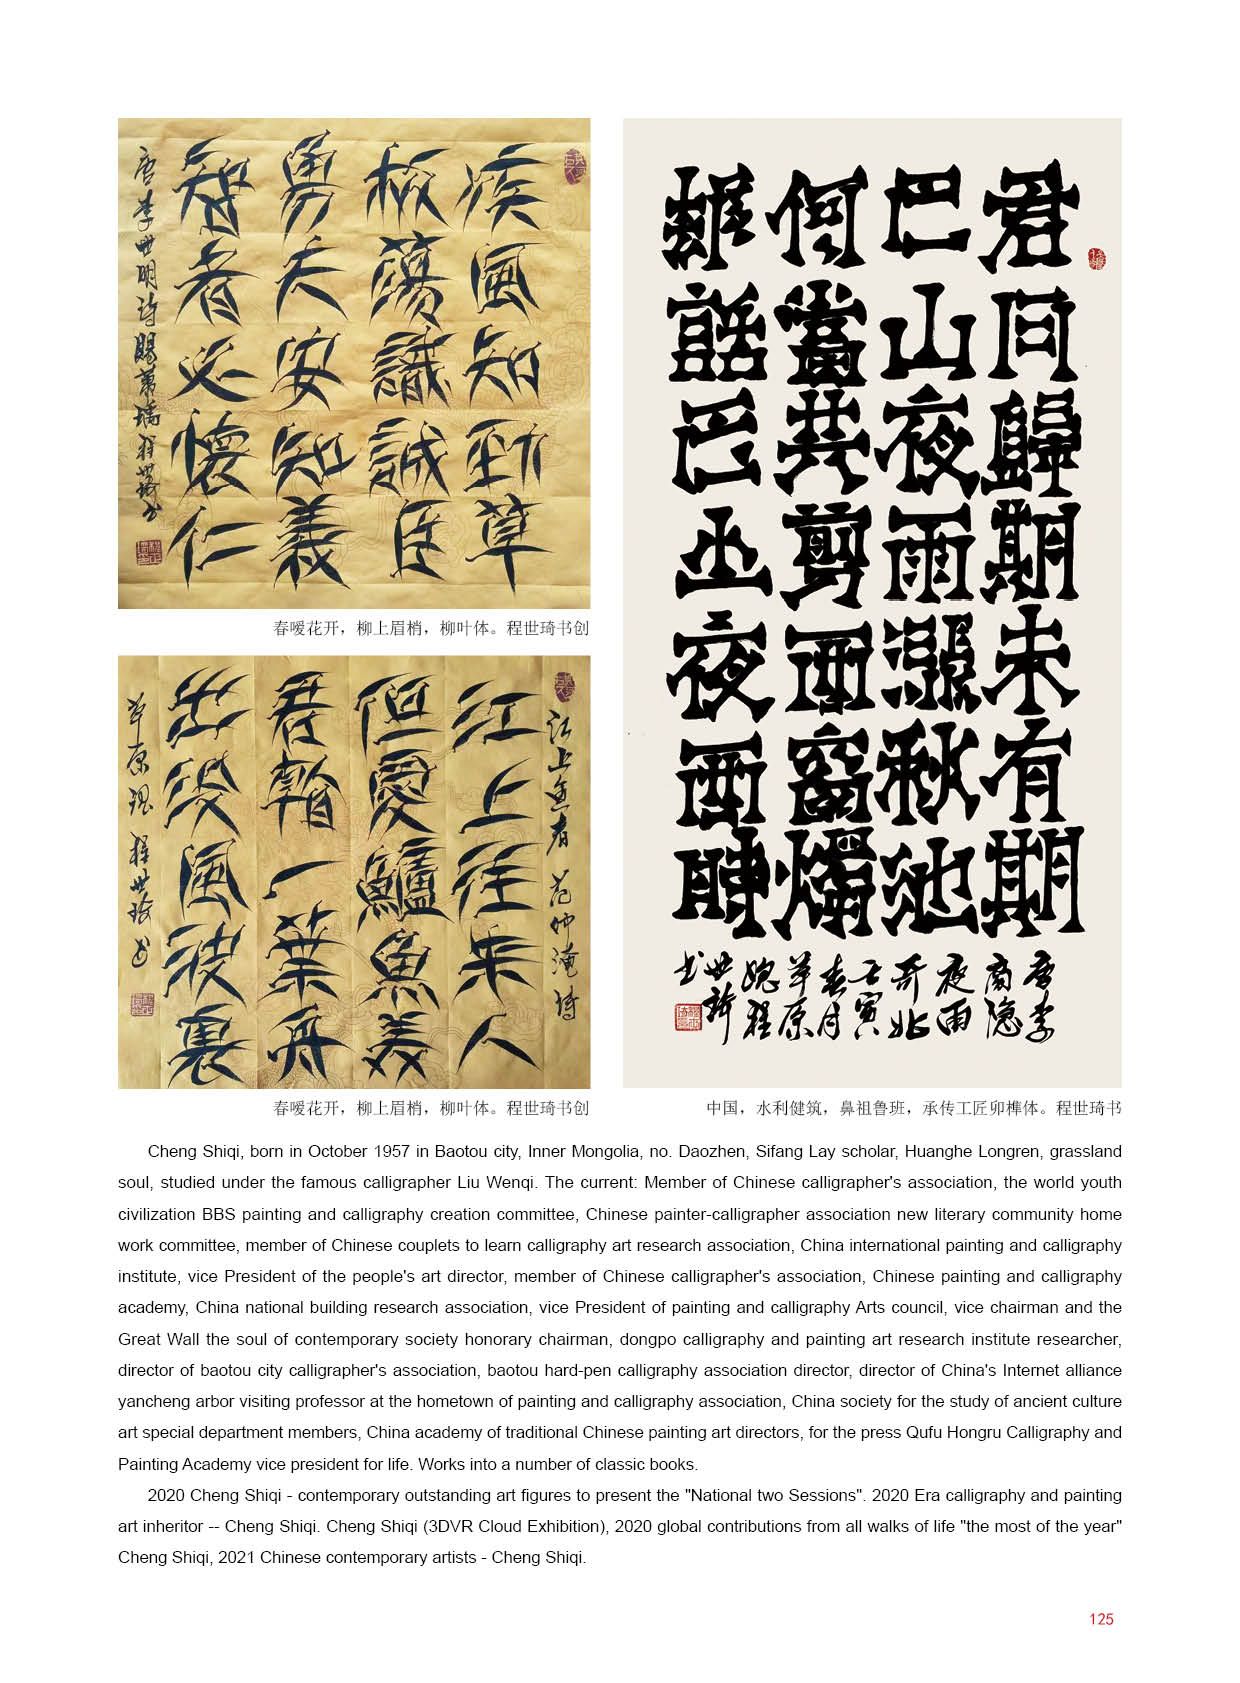 疾風知勁草
板蕩識誠臣
勇夫安知義
智者必懷仁
唐李世明詩賜萧瑀程世琦书
春嗳花开，柳上眉梢，柳叶体。程世琦书创
江上渔者 范仲淹诗
江上往來人
但愛鱸魚美
君看一葉舟
出没風波裏
草原魂程世琦书
春嗳花开，柳上眉梢，柳叶体。程世琦书创
君问歸期未有期
巴山夜雨漲秋池
何當共剪西窗燭
卻話巴山夜雨時
唐李
商隐
夜雨
寄北
壬寅
春月
草原
魂程
世琦
书
中国，水利健筑，鼻祖鲁班，承传工匠卯榫体。程世琦书
Cheng Shiqi, born in October 1957 in Baotou city, Inner Mongolia, no. Daozhen, Sifang Lay scholar, Huanghe Longren, grassland
soul, studied under the famous calligrapher Liu Wenqi. The current: Member of Chinese calligrapher's association, the world youth
civilization BBS painting and calligraphy creation committee, Chinese painter-calligrapher association new literary community home
work committee, member of Chinese couplets to learn calligraphy art research association, China international painting and calligraphy
institute, vice President of the people's art director, member of Chinese calligrapher's association, Chinese painting and calligraphy
academy, China national building research association, vice President of painting and calligraphy Arts council, vice chairman and the
Great Wall the soul of contemporary society honorary chairman, dongpo calligraphy and painting art research institute researcher,
director of baotou city calligrapher's association, baotou hard-pen calligraphy association director, director of China's Internet alliance
yancheng arbor visiting professor at the hometown of painting and calligraphy association, China society for the study of ancient culture
art special department members, China academy of traditional Chinese painting art directors, for the press Qufu Hongru Calligraphy and
Painting Academy vice president for life. Works into a number of classic books.
2020 Cheng Shiqi - contemporary outstanding art figures to present the "National two Sessions". 2020 Era calligraphy and painting
art inheritor -- Cheng Shiqi. Cheng Shiqi (3DVR Cloud Exhibition), 2020 global contributions from all walks of life "the most of the year"
Cheng Shiqi, 2021 Chinese contemporary artists - Cheng Shiqi.
125